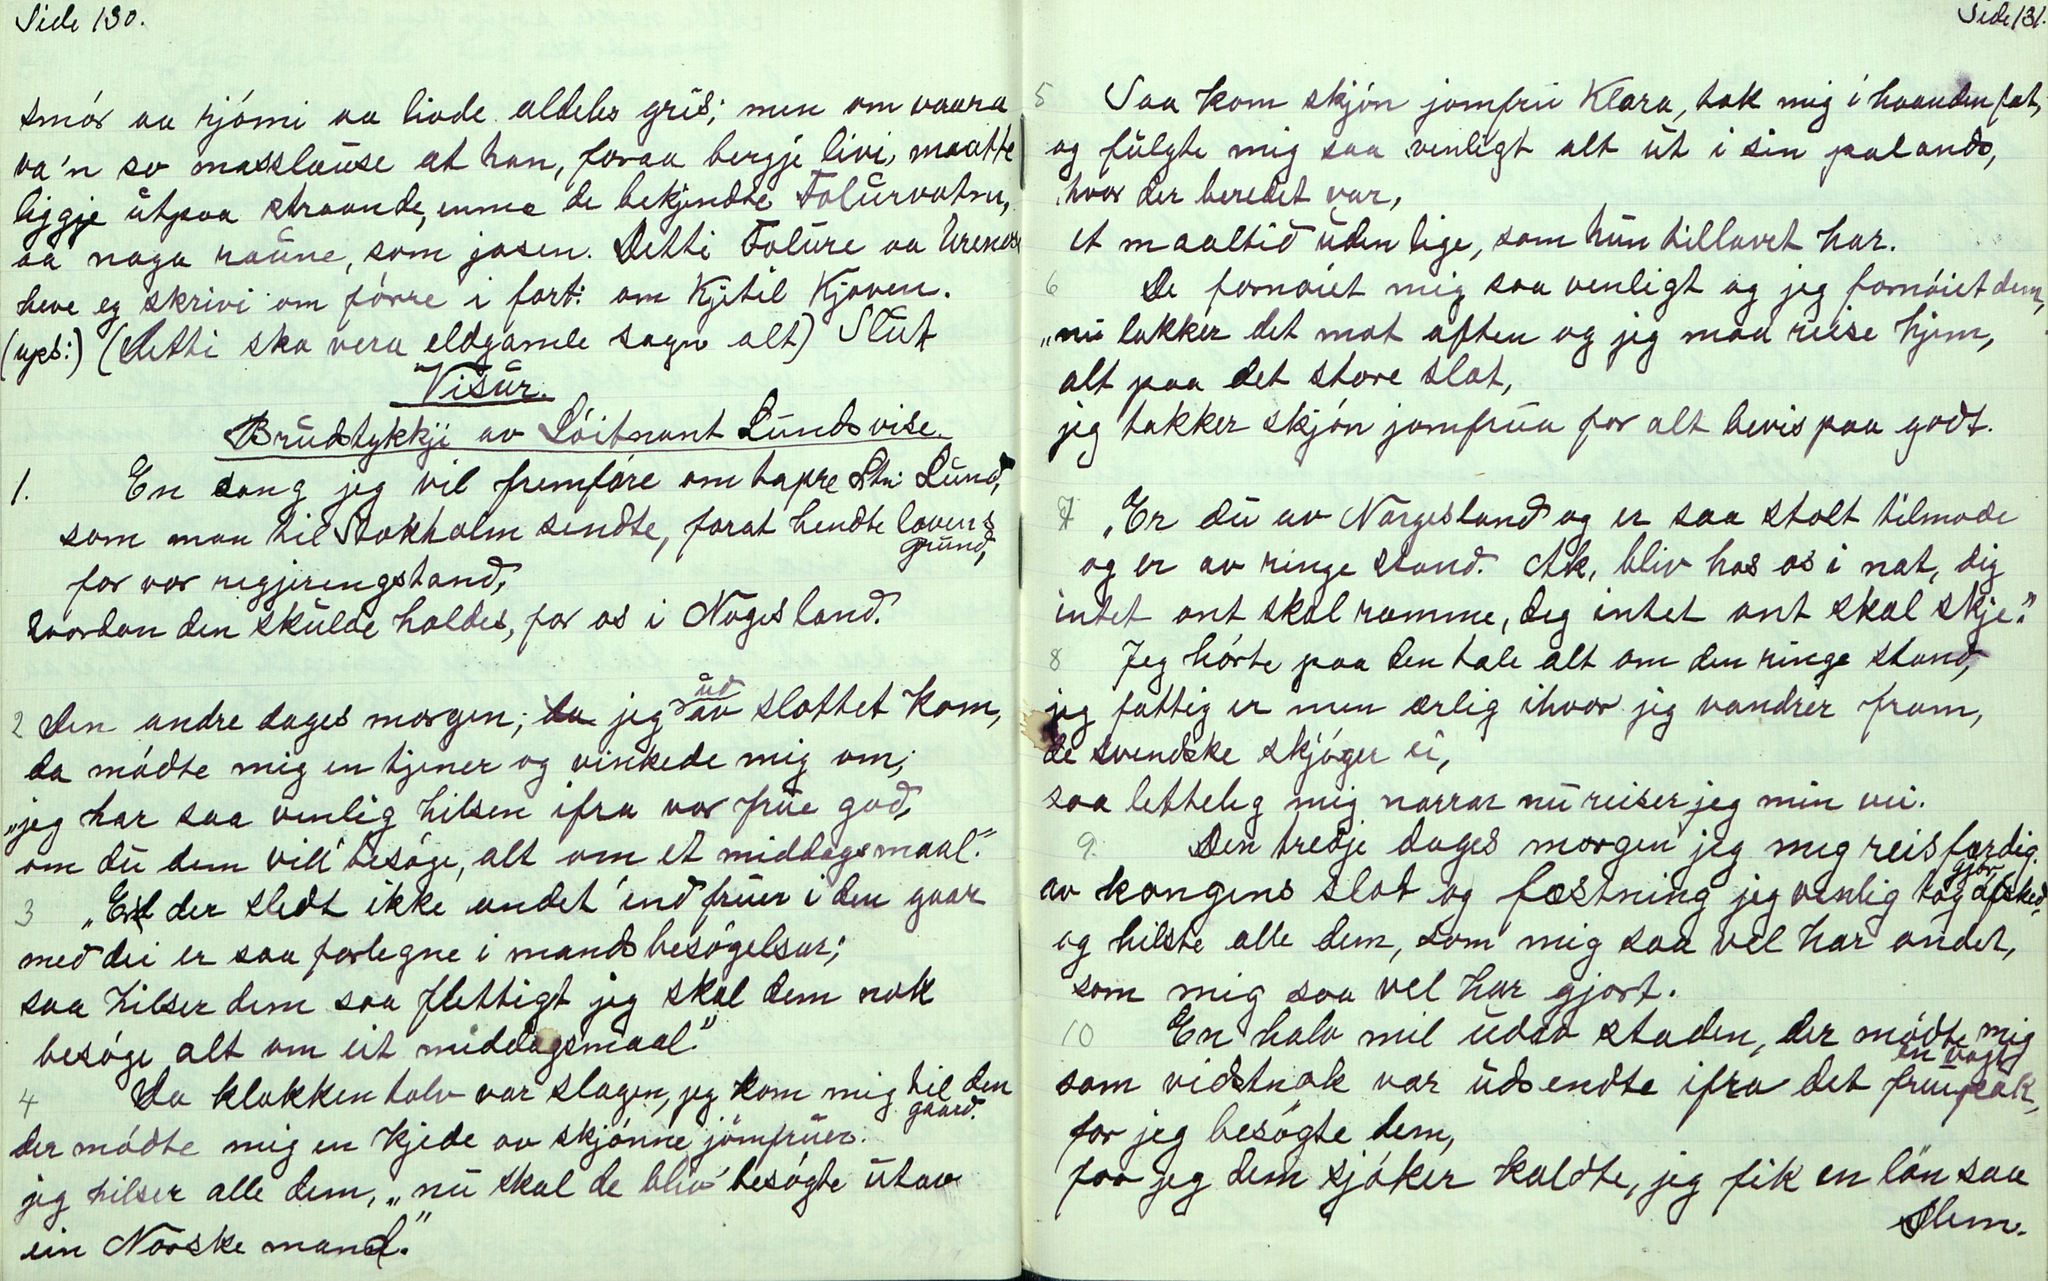 Side 130.
smór aa rjómi aa live aldeles gris; men om vaara
va'n so masslause at han, foraa bergje livi, maatte
liggje utpaa straande, emme de bekjendte Folurvatn,
aa naga raune, som jasen. Detti Folure aa Urenos
heve eg skrivi om fórre i fort: om Kjetil Kjoven.
(ups:) (Detti ska vera eldgamle sagn alt) Slut
Visur.
Brudstykkji av Lóitnant Lunds vise.
1. En sang jeg vil fremfóre om tapre Ltn: Lund,
som man til Stokholm sendte, forat hendte lovens
grund,
for vor regjeringstand,
hvordan den skulde holdes, for os i Nogesland.
2 Den andre dages morgen; da jeg ud av slottet kom,
da módte mig en tjener og vinkede mig om;
"jeg har saa venlig hilsen ifra vor frue god,
om du dem vill besóge, alt om et middagsmaal."
3 "Er der sledt ikke andet end fruer i den gaar
med dei er saa forlegne i mands besógelsar;
saa hilser dem saa flettigt jeg skal dem nok
besóge alt om eit middagsmaal."
4 Da klokken tolv var slagen, jeg kom mig til den
gaard.
der módte mig en kjede av skjónne jómfruer.
jeg hilser alle dem, "nu skal de bliv besógte utav
ein Norske mand."
Side 131.
5 Saa kom skjón jomfru Klara, tok mig i haanden fat,
og fulgte mig saa venligt alt ut i sin palands,
hvor der beredet var,
et maaltid uden lige, som hun tillavet har.
6 De fornóiet mig saa venligt og jeg fornóiet dem,
"nu lakker det mot aften og jeg maa reise hjem,
alt paa det store slot,
jeg takker skjón jomfrua for alt bevis paa godt.
7 "Er du av Norgesland og er saa stolt tilmode
og er av ringe stand. Ak, bliv hos os i nat, dig
intet ont skal ramme, deg intet ont skal skje."
8 Jeg hórte paa den tale alt om den ringe stand,
jeg fattig er men ærlig ihvor jeg vandrer fram,
de svendske skjóger ei,
saa letteleg mig narrar nu reiser jeg min vei.
9. Den tredje dages morgen jeg mig reisfærdig
gjor,
av kongens slot og fæstning jeg venlig tog afsked,
og hilste alle dem, som mig saa vel har andet,
som mig saa vel har gjort.
10 En halv mil udav staden, der módte mig
en vogt
som vidstnok var udsendte ifra det fruepak,
for jeg besógte dem,
for jeg dem sjóker kaldte, jeg fik en lón saa
slem.